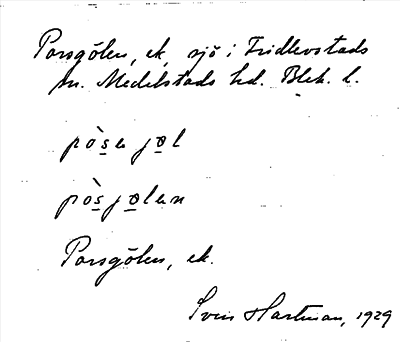 Porsgölen, ek, sjö i Fridlevstads
sn. Medelstads hd. Blek. l.
pò̱sa jo̱l
pò̱sjo̱lan
Porsgölen, ek.
Sven Hartman, 1929